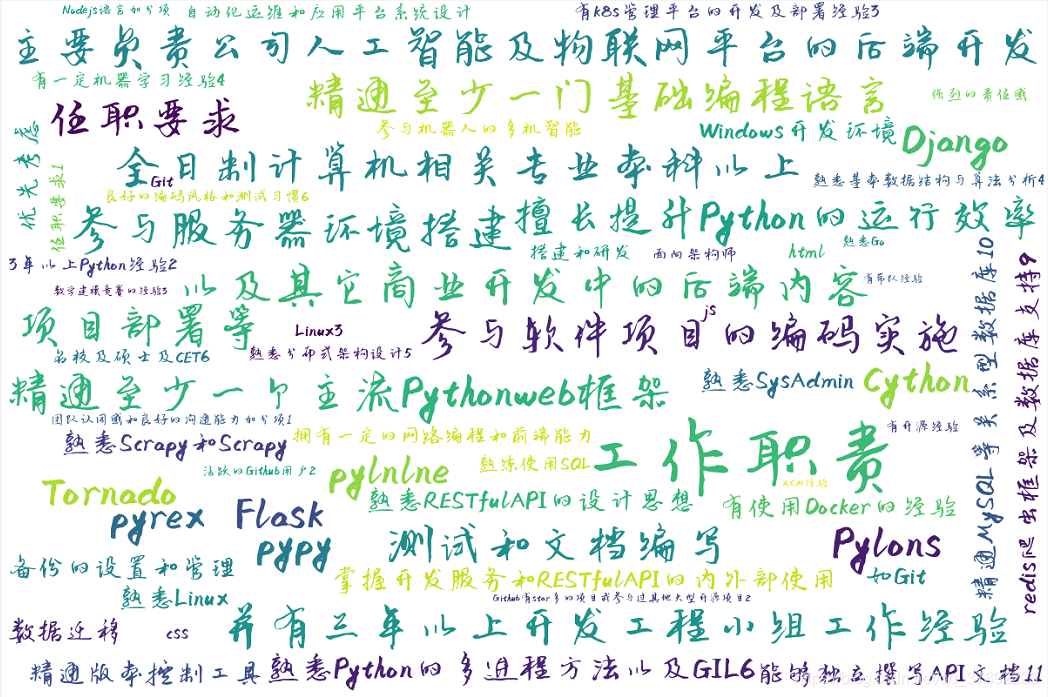 Nodejs语言加分项
自动化运维和应用平台系统设计
有k8s管理平台的开发及部署经验3
主要负责公司人工智能及物联网平台的后端开发
有一定机器学习经验4
精通至少一门基础编程语言
强烈的责任感
任职要求
参与机器人的多机智能
Windows开发环境
Django
优先考虑
任职要求1
全日制计算机相关专业本科以上
Git
熟悉基本数据结构与算法分析4
良好的编码风格和测试习惯6
参与服务器环境搭建
擅长提升Python的运行效率
搭建和研发
面向架构师
html
熟悉Go
3年以上Python经验2
以及其它商业开发中的后端内容
有带队经验
数学建模竞赛的经验3
项目部署等
Linux3
js
参与软件项目的编码实施
名校及硕士及CET6
熟悉分布式架构设计5
精通MySQL等关系型数据库10
redis爬虫框架及数据库支持9
精通至少一个主流Pythonweb框架
熟悉SysAdmin
Cython
团队认同感和良好的沟通能力加分项1
有开源经验
熟悉Scrapy和Scrapy
拥有一定的网络编程和前端能力
工作职责
活跃的Github用户2
pylnlne
熟练使用SQL
ACM经验
Tornado
熟悉RESTfulAPI的设计思想
有使用Docker的经验
pyrex
Flask
pypy
测试和文档编写
Pylons
备份的设置和管理
掌握开发服务和RESTfulAPI的内外部使用
如Git
熟悉Linux
Github有star多的项目或参与过其他大型开源项目2
数据迁移
css
并有三年以上开发工程小组工作经验
精通版本控制工具
熟悉Python的多进程方法以及GIL6
能够独立撰写API文档11